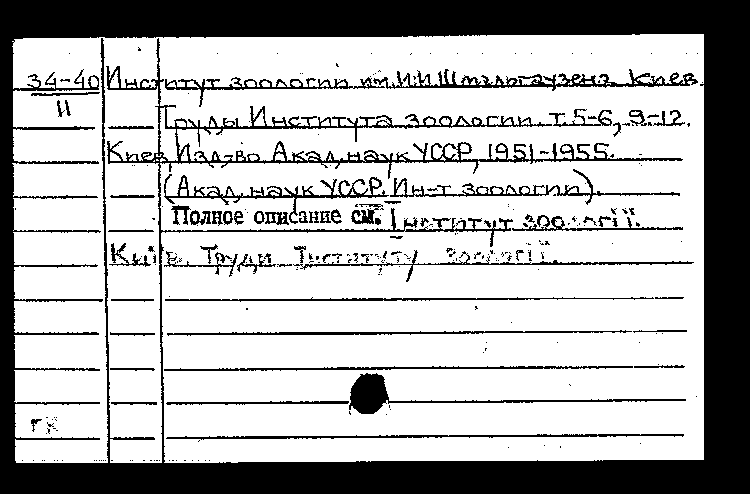 34-40 Институт зоологии им. И.И. Шмальгаузена. Киев.
11 Труды Института зоологии. т. 5-6, 9-12.
Киев, Изд-во Акад. наук УССР, 1951-1955.
(Акад. наук УССР. Ин-т зоологии).
Полное описание см. Інститут зоологіï.
Киïв. Труди Iнституту зоологіï.
ГК